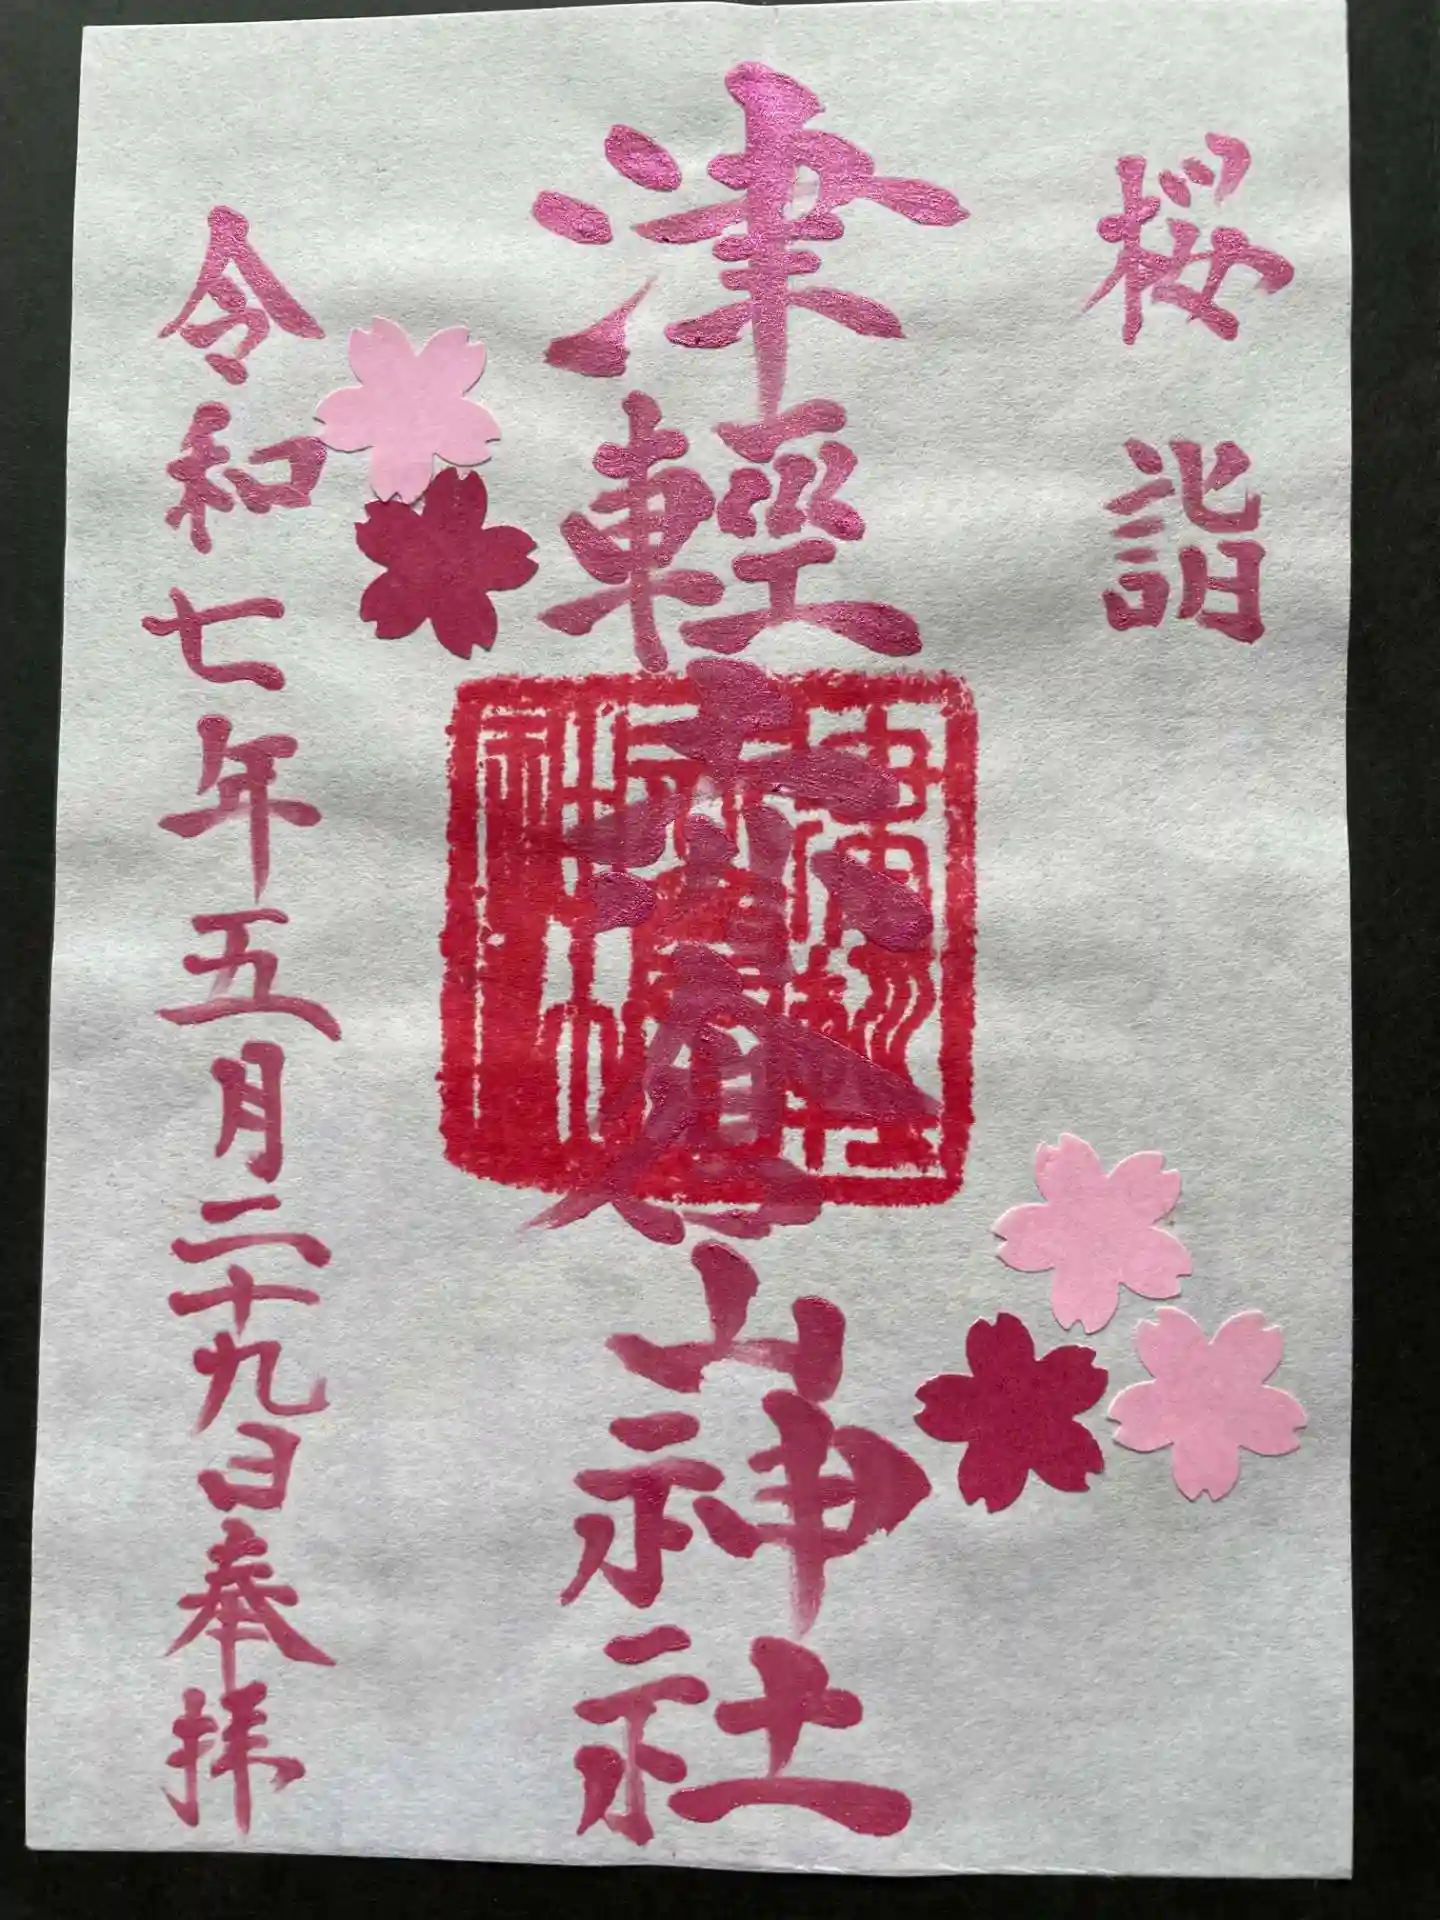 桜詣
津輕赤倉山神社
令和七年五月二十九日奉拝